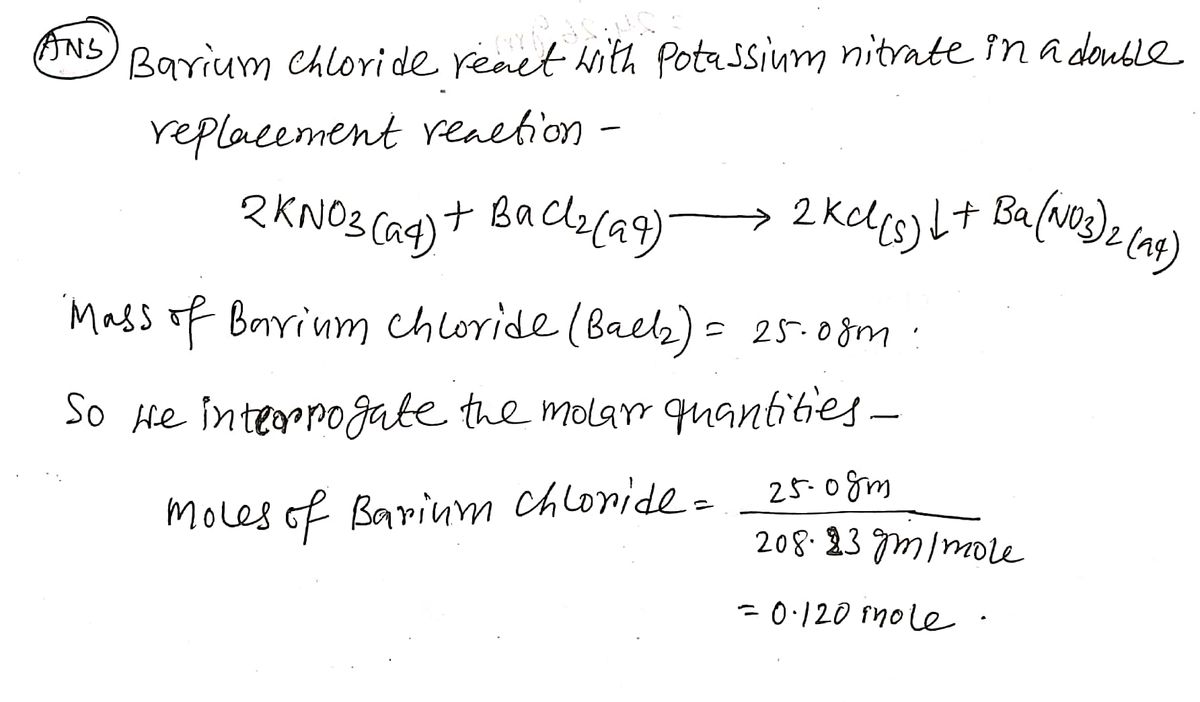 ANS Barium chloride react with Potassium nitrate in a double
replacement reaction -
2KNO3(aq) + BaCl2(aq) → 2KCl(s)↓ + Ba(NO3)2(aq)
Mass of Barium chloride (BaCl2) = 25.0gm.
So we interrogate the molar quantities -
Moles of Barium Chloride = 25.0gm
208.23 gm/mole
= 0.120 mole.